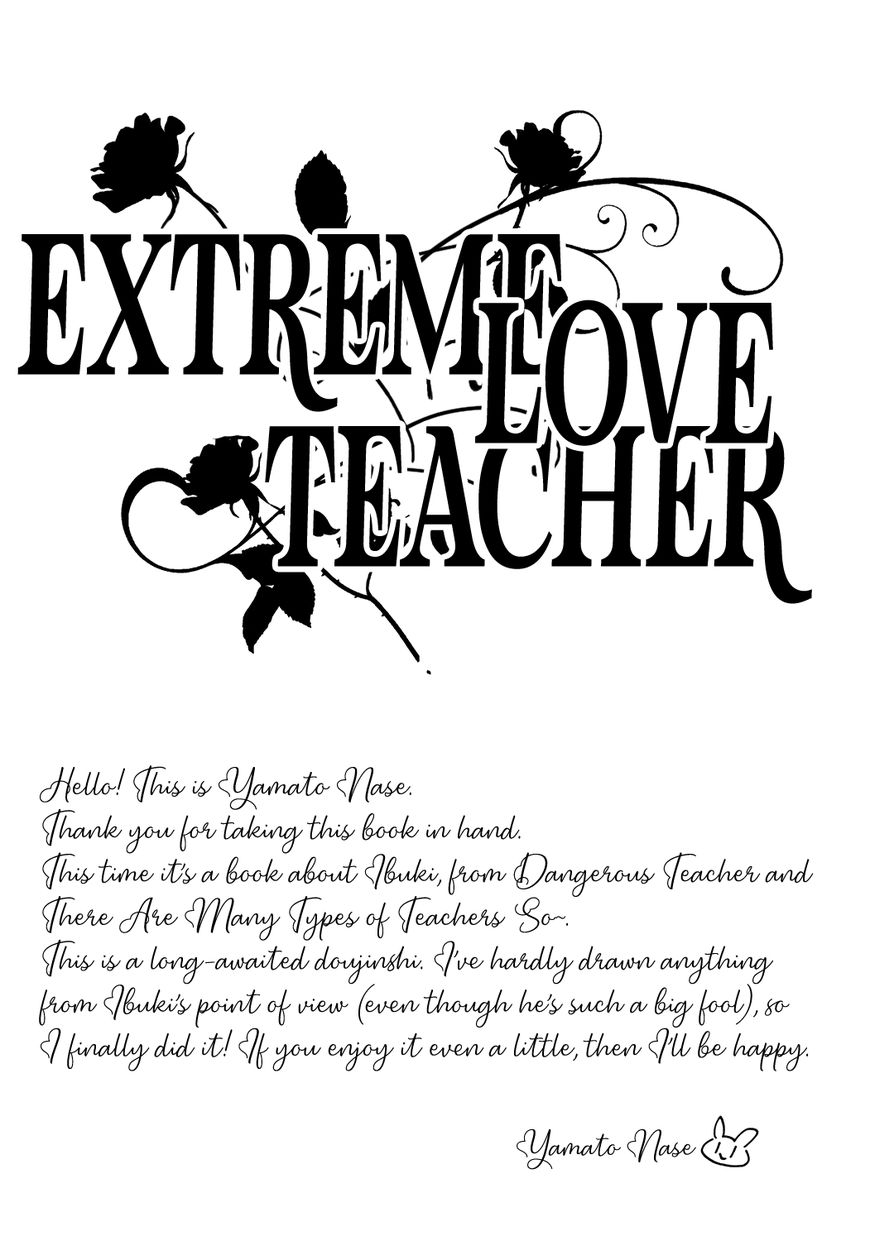 EXTREME
LOVE
TEACHER
Hello! This is Yamato Nase.
Thank you for taking this book in hand.
This time it's a book about Ibuki, from Dangerous Teacher and
There Are Many Types of Teachers So~.
This is a long-awaited doujinshi. I've hardly drawn anything
from Ibuki's point of view (even though he's such a big fool), so
I finally did it! If you enjoy it even a little, then I'll be happy.
Yamato Nase